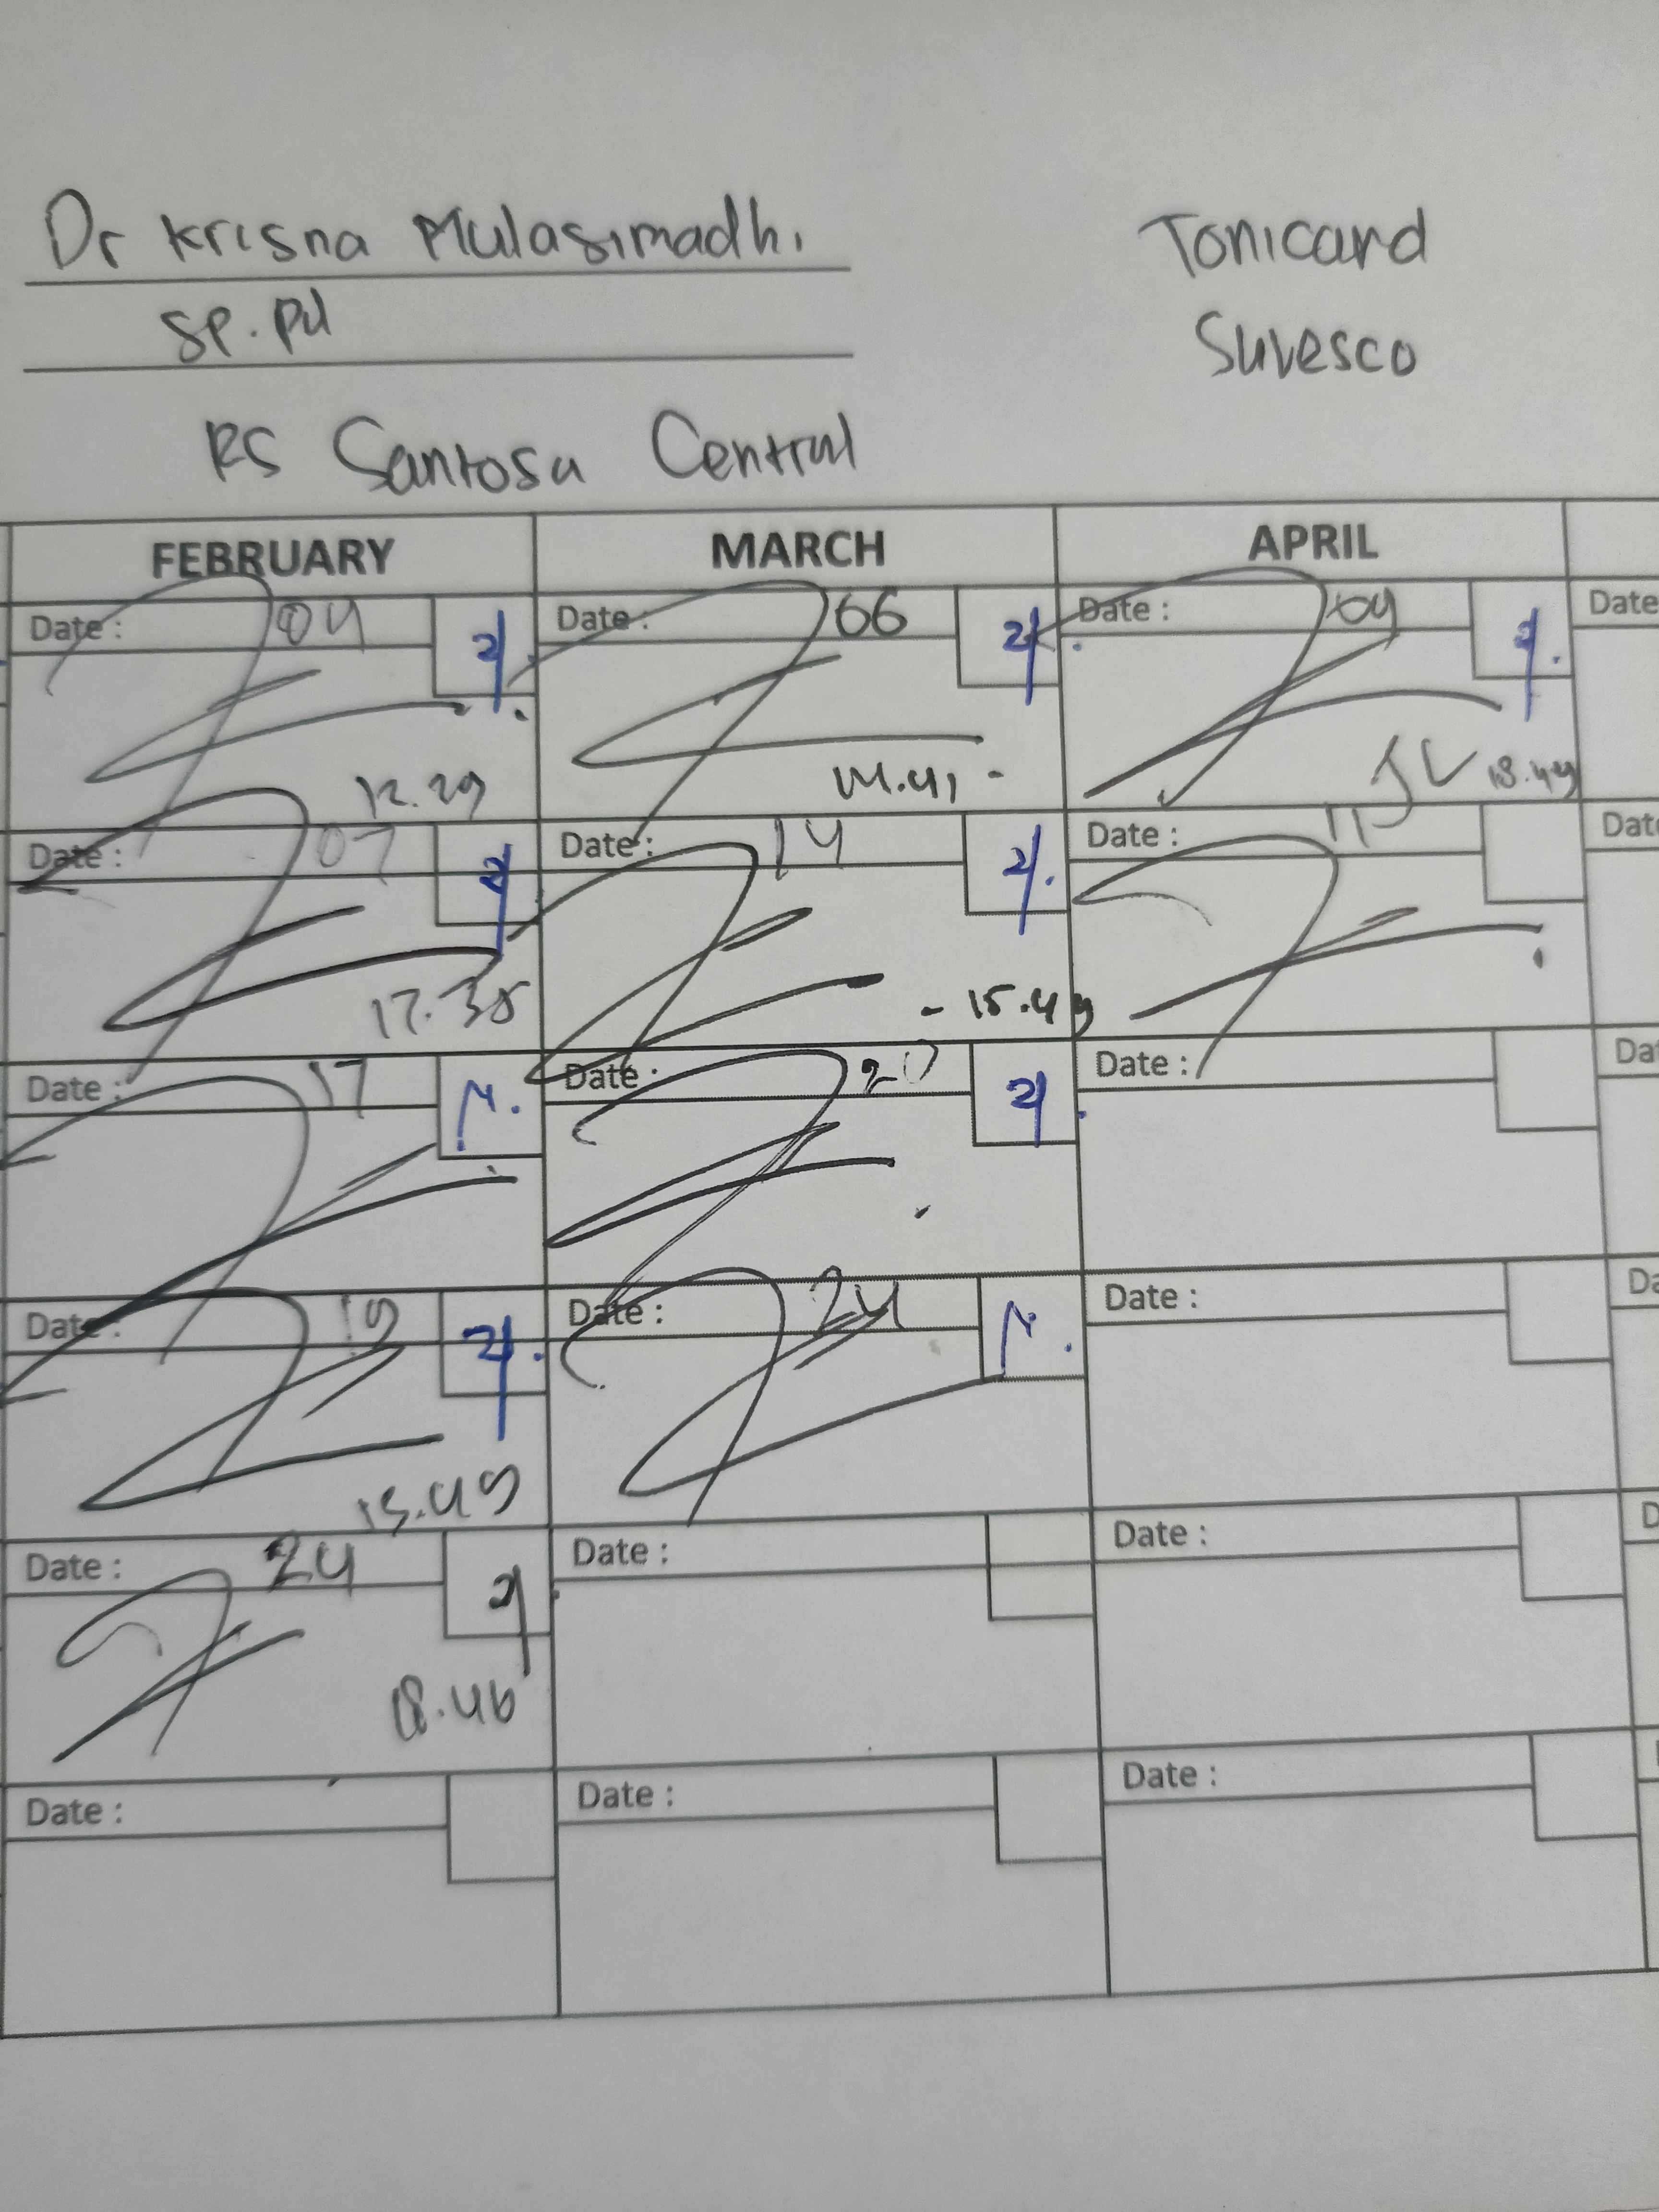 Dr Krisna Mulasimadhi
Sp.Pd
Tonicard
Suvesco
RS Santosa Central
FEBRUARY MARCH APRIL
Date : 04 Date : 06 Date : 04 Date
12.29 14.41 - JL 18.49
Date : 07 Date : 14 Date : 11 Date
17.38 - 15.49
Date : 17 Date : 20 Date : Da
Date : 19 Date : 24 Date : Da
15.49
Date : 24 Date : Date : D
18.46
Date : Date : Date :